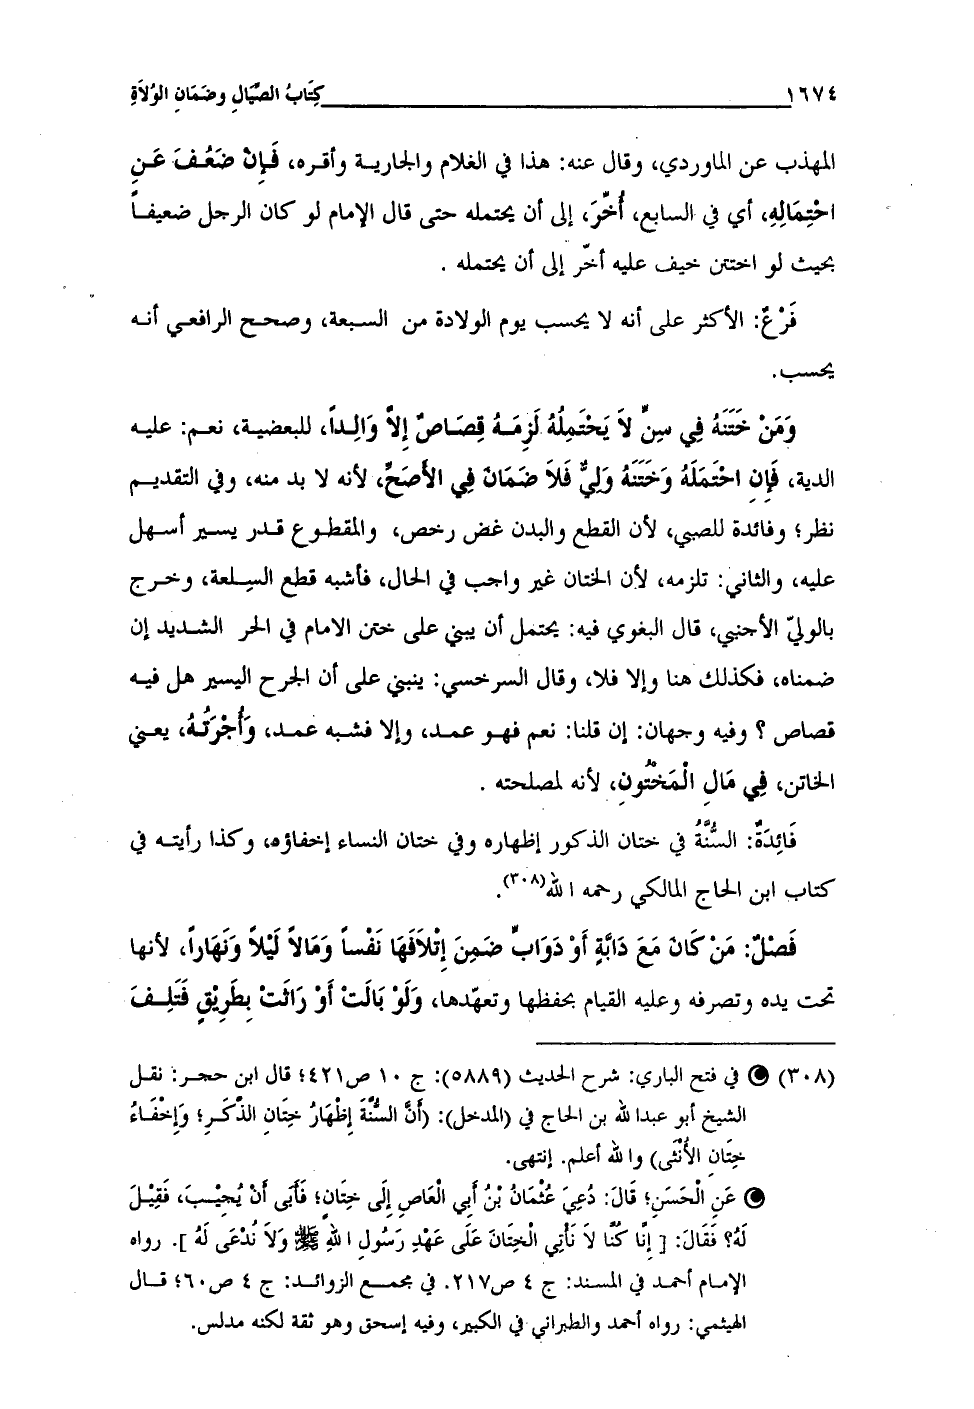 ١٦٧٤ كِتَابُ الصِّيَالِ وضَمَانِ الوُلاَةِ
المهذب عن الماوردي، وقال عنه: هذا في الغلام والجارية وأقره، فَإِنْ ضَعُفَ عَنِ
احْتِمَالِهِ، أي في السابع، أُخِّرَ، إلى أن يحتمله حتى قال الإمام لو كان الرجل ضعيفاً
بحيث لو اختتن خيف عليه أخّر إلى أن يحتمله .
فَرْعٌ: الأكثر على أنه لا يحسب يوم الولادة من السبعة، وصحح الرافعي أنه
يحسب.
وَمَنْ خَتَنَهُ فِي سِنٍّ لاَ يَحْتَمِلُهُ لَزِمَهُ قِصَاصٌ إِلاَّ وَالِداً، للبعضية، نعم: عليه
الدية، فَإِنِ احْتَمَلَهُ وَخَتَنَهُ وَلِيٌّ فَلاَ ضَمَانَ فِي الأَصَحِّ، لأنه لا بد منه، وفي التقديم
نظر؛ وفائدة للصبي، لأن القطع والبدن غض رخص، والمقطوع قدر يسير أسهل
عليه، والثاني: تلزمه، لأن الختان غير واجب في الحال، فأشبه قطع السِلعة، وخرج
بالوليّ الأجنبي، قال البغوي فيه: يحتمل أن يبني على ختن الامام في الحر الشديد إن
ضمناه، فكذلك هنا وإلا فلا، وقال السرخسي: ينبني على أن الجرح اليسير هل فيه
قصاص ؟ وفيه وجهان: إن قلنا: نعم فهو عمد، وإلا فشبه عمد، وَأُجْرَتُهُ، يعني
الخاتن، فِي مَالِ الْمَخْتُونِ، لأنه لمصلحته .
فَائِدَةٌ: السُّنَّةُ في ختان الذكور إظهاره وفي ختان النساء إخفاؤه، وكذا رأيته في
كتاب ابن الحاج المالكي رحمه الله(٣٠٨).
فَصْلٌ: مَنْ كَانَ مَعَ دَابَّةٍ أَوْ دَوَابٍّ ضَمِنَ إِتْلاَفَهَا نَفْساً وَمَالاً لَيْلاً وَنَهَاراً، لأنها
تحت يده وتصرفه وعليه القيام بحفظها وتعهّدها، وَلَوْ بَالَتْ أَوْ رَاثَتْ بِطَرِيْقٍ فَتَلِفَ
(٣٠٨) في فتح الباري: شرح الحديث (٥٨٨٩): ج ١٠ ص٤٢١؛ قال ابن حجر: نقل
الشيخ أبو عبدالله بن الحاج في (المدخل): (أَنَّ السُّنَّةَ إِظْهَارُ خِتَانِ الذَّكَرِ؛ وَإِخْفَاءُ
خِتَانِ الأُنْثَى) والله أعلم. إنتهى.
عَنِ الْحَسَنِ؛ قَالَ: دُعِيَ عُثْمَانُ بْنُ أَبِي الْعَاصِ إِلَى خِتَانٍ؛ فَأَبَى أَنْ يُجِيْبَ، فَقِيْلَ
لَهُ؟ فَقَالَ: [ إِنَّا كُنَّا لاَ نَأْتِي الْخِتَانَ عَلَى عَهْدِ رَسُولِ اللهِ ﷺ وَلاَ نُدْعَى لَهُ ]. رواه
الإمام أحمد في المسند: ج ٤ ص٢١٧. في مجمع الزوائد: ج ٤ ص٦٠؛ قال
الهيثمي: رواه أحمد والطبراني في الكبير، وفيه إسحق وهو ثقة لكنه مدلس.